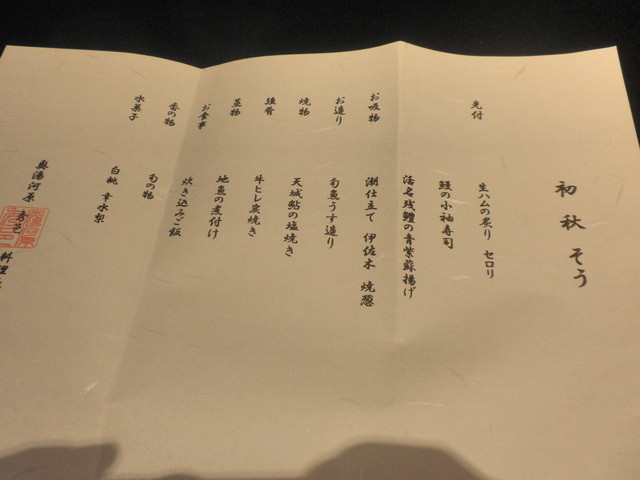 初秋 そう
先付
生ハムの炙り セロリ
鰻の小袖寿司
活〆鱧の青紫蘇揚げ
お吸物
潮仕立て 伊佐木 焼葱
お造り
旬魚うす造り
焼物
天城鮎の塩焼き
強肴
牛ヒレ炭焼き
蒸物
地魚の煮付け
お食事
炊き込みご飯
香の物
旬の物
水菓子
白桃 幸水梨
奥湯河原
料理